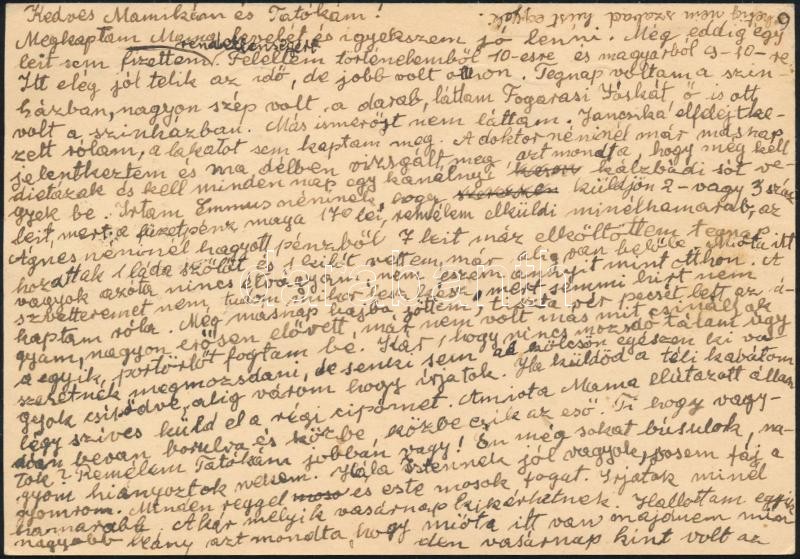 Kedves Mamikám és Tatókám!
hétig nem szabad húst egyek.
Megkaptam Mama levelét és igyekszem jó lenni. Még eddig egy
rendetlenségért
leit sem fizettem. Feleltem történelemből 10-esre és magyarból 9-10-re.
Itt elég jól telik az idő, de jobb volt otthon. Tegnap voltam a szín-
házban, nagyon szép volt a darab, láttam Fogarasi Jóskát, ő is ott
volt a színházban. Más ismerőst nem láttam. Jancsika elfelejtke-
zett rólam, a lakatot sem kaptam meg. A doktor néninél már másnap
jelentkeztem és ma délben vizsgált meg, azt mondta, hogy még kell
diétázak és kell minden nap egy kanálnyi kálzbádi sót ve-
gyek be. Írtam Emmus néninek, hogy küldjön 2- vagy 3 száz
leit, mert a füzetpénz maga 170 lei, remélem elküldi minélhamarab, az
Ágnes néninél hagyott pénzből 7 leit már elköltöttem tegnap
hozattak 1 láda szőlőt és 1 kilót vettem, már van belőle. Mióta itt
vagyok azóta nincs étvágyam, nem eszem annyit mint otthon. A
szvetteremet nem tudom mikor lesz kész mert semmi hírt nem
kaptam róla. Még másnap bajba jöttem, tiszta vér pecsét lett az á-
gyam, nagyon erősen elővett, mát nem volt más mit csináljak
a egyik portörlőt fogtam be. Kár, hogy nincs mozsdó tálam úgy
szeretnék megmozsdani, de senki sem ad kölcsön egészen ki va-
gyok csípődve, alig várom hogy írjatok. Ha küldöd a téli kabátom
légy szíves küld el a régi cipőmet. Amióta Mama elutazott állan-
dóan bevan borulva és közbe, közbe esik az eső. Ti hogy vagy-
tok? Remélem Tatókám jobban vagy! Én még sokat búsulok, na-
gyom hiányoztok nekem. Hála Istennek jól vagyok, sosem fáj a
gyomrom. Minden reggel és este mosok fogat. Írjatok minél
hamarabb. Akár melyik vasárnap kikérhetnek. Hallottam egyik
nagyobb leány azt mondta, hogy mióta itt van majdnem min-
den vasárnap kint volt az
darabanth